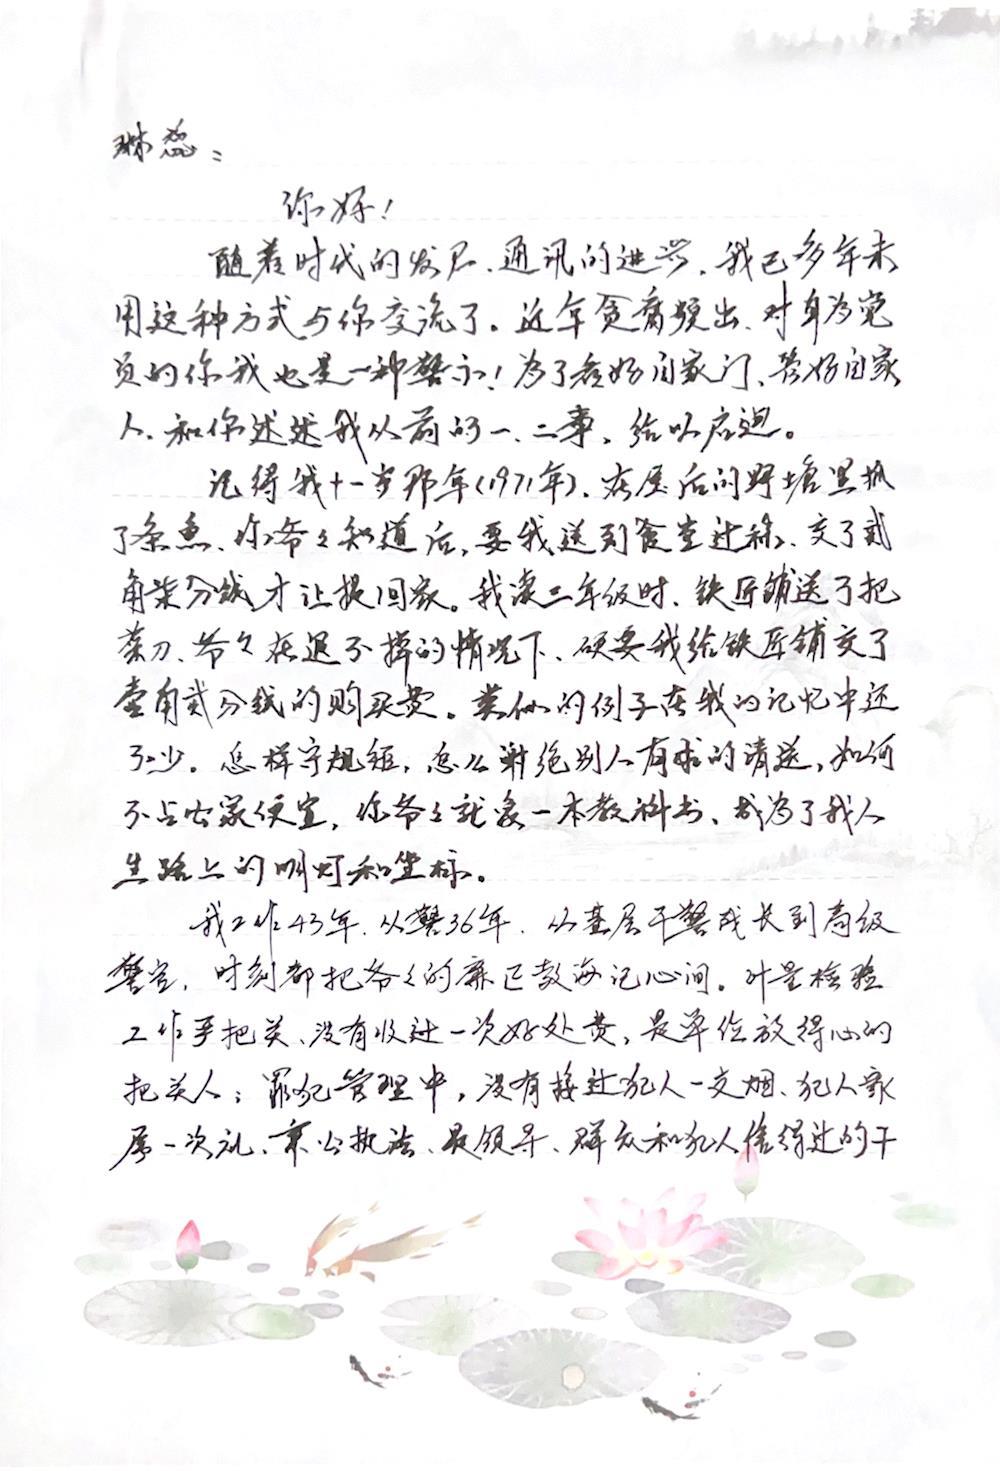 琳蕊：
你好！
随着时代的发展、通讯的进步，我已多年未
用这种方式与你交流了。近年贪腐频出、对身为党
员的你我也是一种警示！为了看好自家门、管好自家
人、和你述述我从前的一、二事，给以启迪。
记得我十一岁那年(1971年)、在屋后的野塘里抓
了条鱼、你爷々知道后，要我送到食堂过称、交了贰
角柒分钱才让提回家。我读三年级时、铁匠铺送了把
菜刀、爷々在退不掉的情况下、硬要我给铁匠铺交了
壹角贰分钱的购买费。类似的例子在我的记忆中还
不少。怎样守规矩，怎么谢绝别人有求的请送，如何
不占公家便宜，你爷々就象一本教科书、成为了我人
生路上的明灯和坐标。
我工作43年、从警36年、从基层干警成长到高级
警官，时刻都把爷々的廉正教诲记心间。计量检验
工作严把关、没有收过一次好处费，是单位放得心的
把关人；罪犯管理中，没有接过犯人一支烟、犯人家
属一次礼、秉公执法、是领导、群众和犯人信得过的干